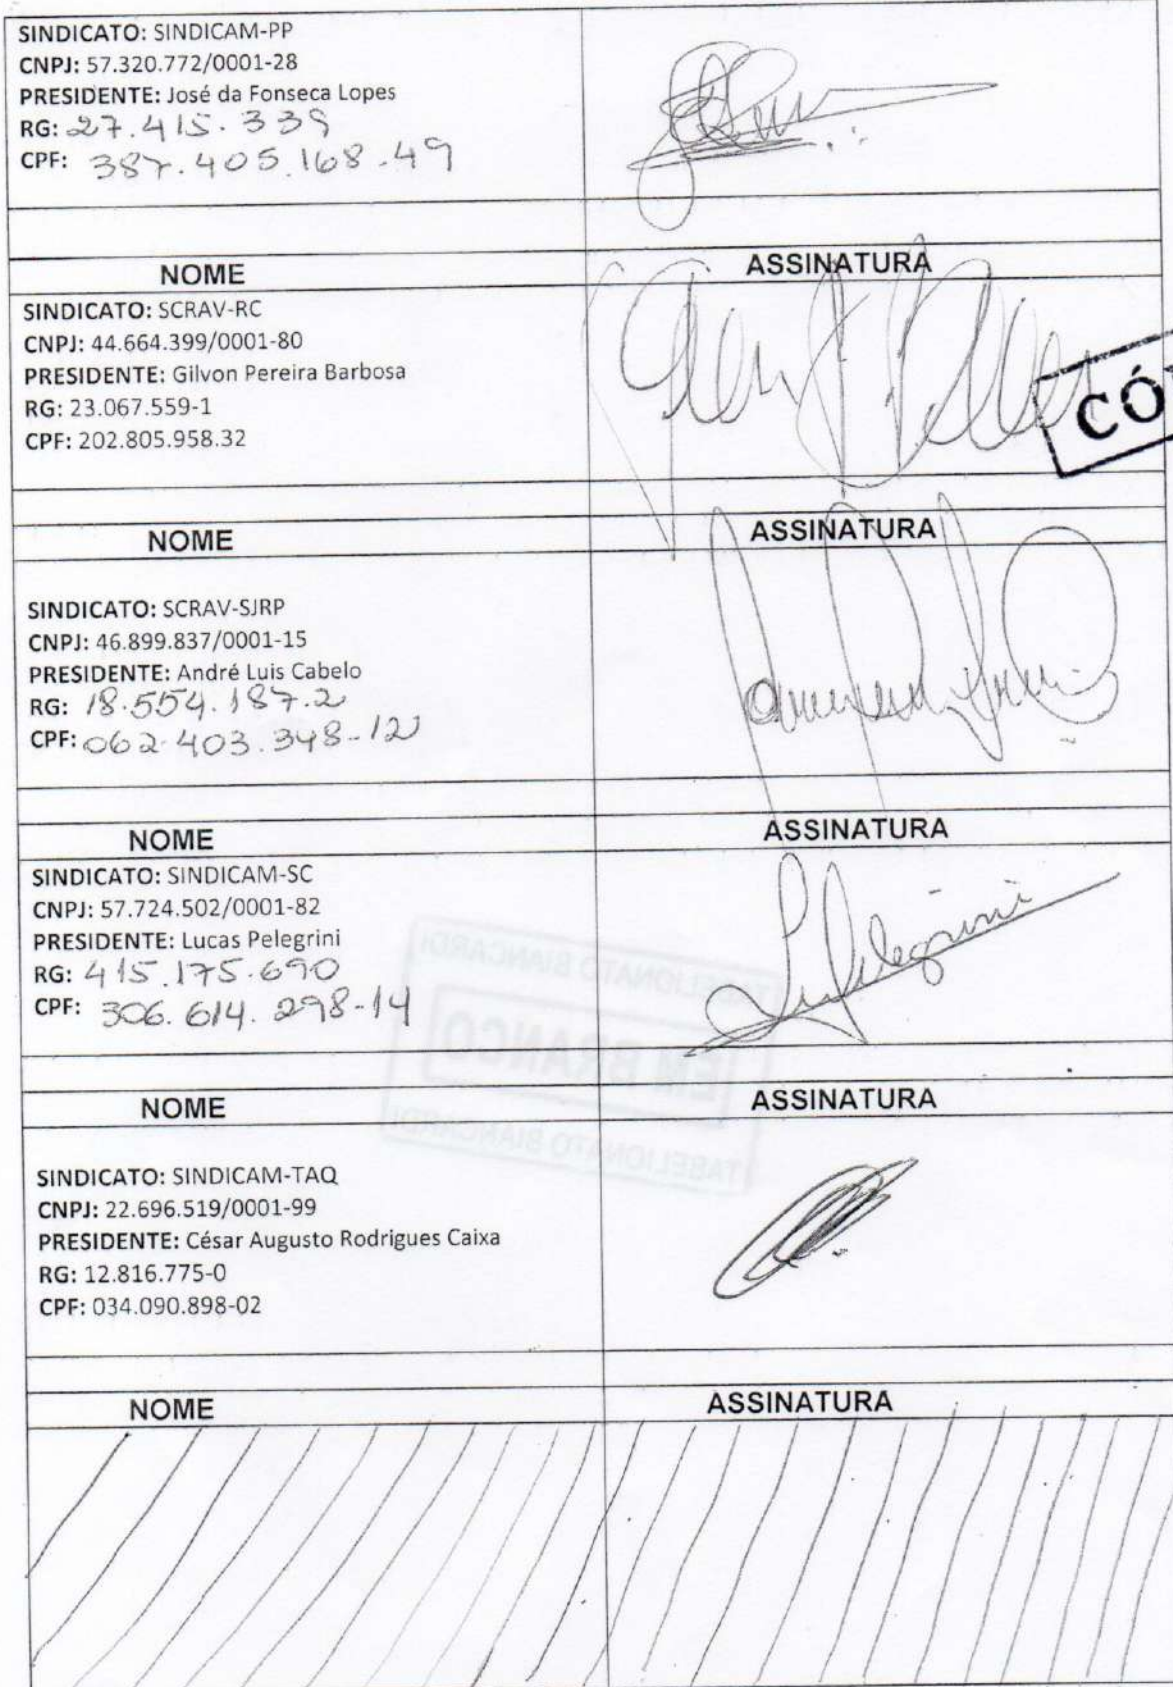 SINDICATO: SINDICAM-PP
CNPJ: 57.320.772/0001-28
PRESIDENTE: José da Fonseca Lopes
RG: 27.415.339
CPF: 387.405.168-49
NOME ASSINATURA
SINDICATO: SCRAV-RC
CNPJ: 44.664.399/0001-80
PRESIDENTE: Gilvon Pereira Barbosa
RG: 23.067.559-1
CPF: 202.805.958.32
CÓ
NOME ASSINATURA
SINDICATO: SCRAV-SJRP
CNPJ: 46.899.837/0001-15
PRESIDENTE: André Luis Cabelo
RG: 18.554.187.2
CPF: 062.403.348-12
NOME ASSINATURA
SINDICATO: SINDICAM-SC
CNPJ: 57.724.502/0001-82
PRESIDENTE: Lucas Pelegrini
RG: 415.175.690
CPF: 306.614.298-14
TABELIONATO BIANCARDI
EM BRANCO
TABELIONATO BIANCARDI
NOME ASSINATURA
SINDICATO: SINDICAM-TAQ
CNPJ: 22.696.519/0001-99
PRESIDENTE: César Augusto Rodrigues Caixa
RG: 12.816.775-0
CPF: 034.090.898-02
NOME ASSINATURA